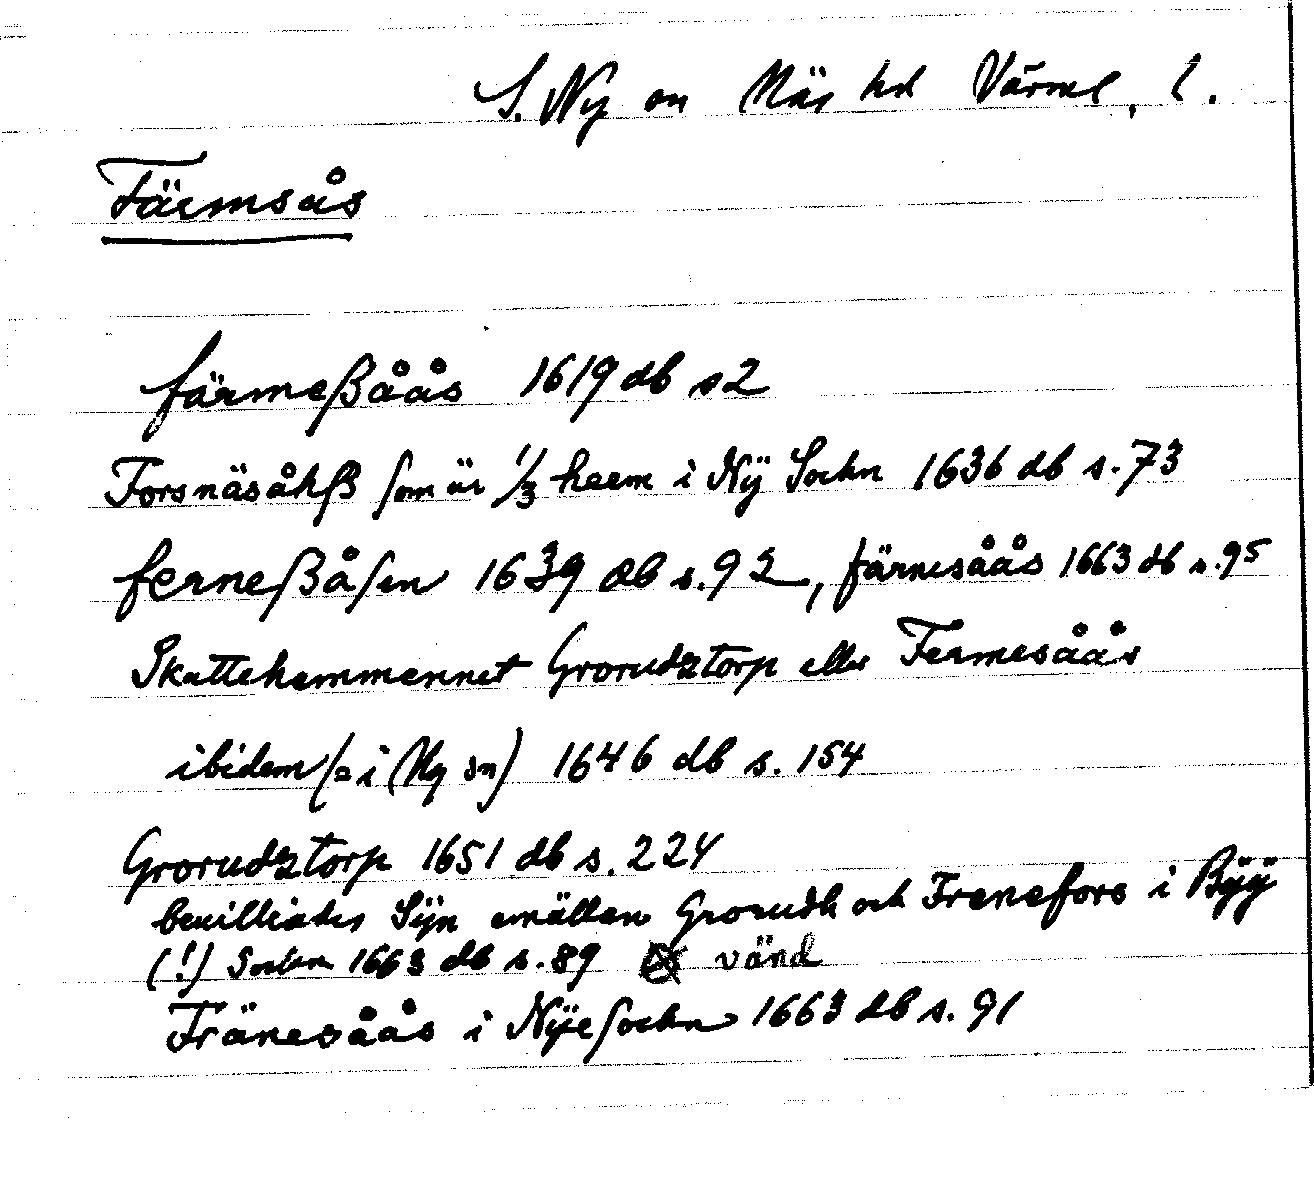 S. Ny sn Näs hd Värml. l.
Färmsås
färmeßåås 1619 db s 2
Forsnäsåhß som är 1/3 heem i Nÿ Sochn 1636 db s. 73
ferneßåsen 1639 db s. 92, färnesåås 1663 db s. 95
Skattehemmennet Grorudztorp eller Fermesåås
ibidem (= i Ny sn) 1646 db s. 154
Grorudztorp 1651 db s. 224
bewilliades Sÿn emällan Grorudh och Frenefors i Bÿÿ
(!) Sochn 1663 db s. 89 vänd
Fränesåås i Nÿe sochn 1663 db s. 91